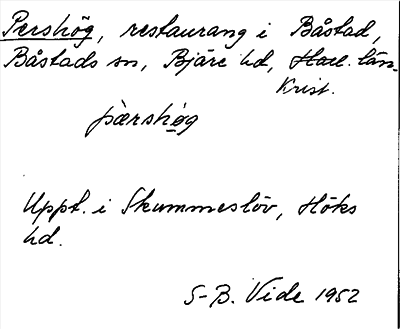 Pershög, restaurang i Båstad,
Båstads sn, Bjäre hd, Hall. län
Krist.
pærshög
Uppt. i Skummeslöv, Höks
hd.
S-B. Vide 1952